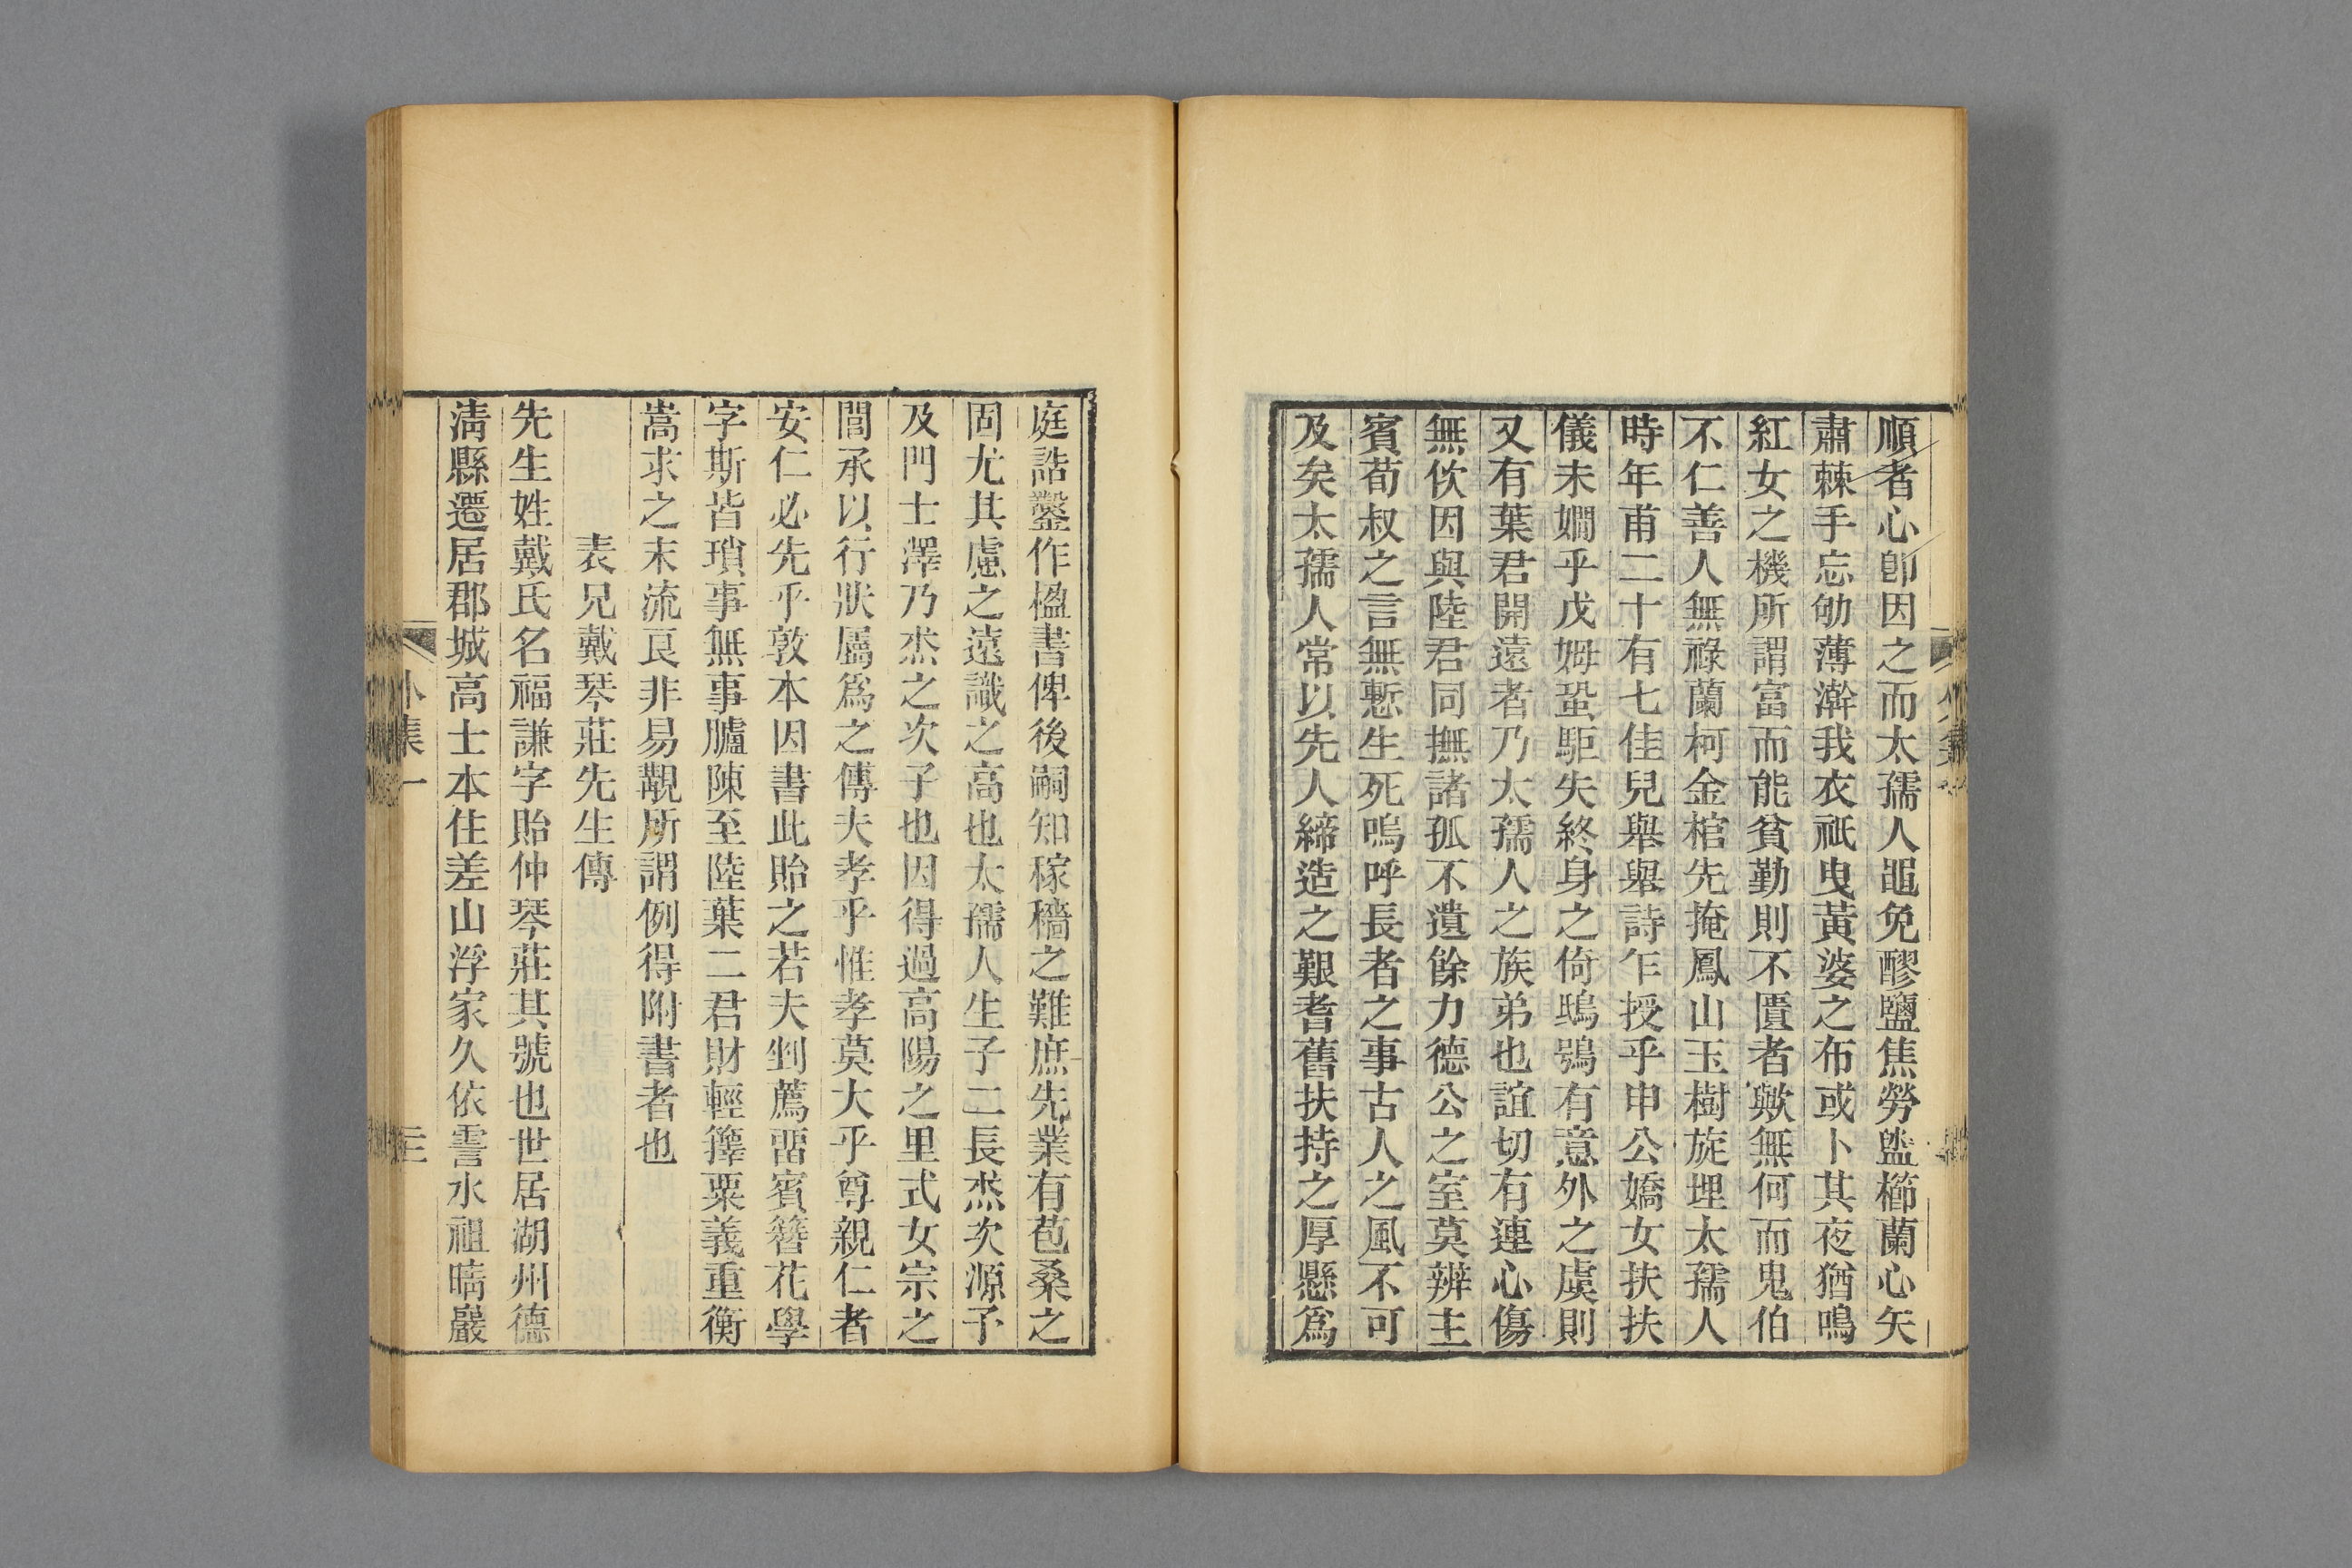 順者心卽因之而太孺人黽免醪鹽焦勞盬櫛蘭心矢
肅棘手忘劬薄澣我衣祇曳黃婆之布或卜其夜猶鳴
紅女之機所謂富而能貧勤則不匱者歟無何而鬼伯
不仁善人無祿蘭柯金棺先掩鳳山玉樹旋埋太孺人
時年甫二十有七佳兒舉舉詩乍授乎申公嬌女扶扶
儀未嫺乎戊姆蛩駏失終身之倚鴟鴞有意外之虞則
又有葉君開遠者乃太孺人之族弟也誼切有連心傷
無佽因與陸君同撫諸孤不遺餘力德公之室莫辨主
賓荀叔之言無慙生死嗚呼長者之事古人之風不可
及矣太孺人常以先人締造之艱耆舊扶持之厚懸爲
庭誥鑿作楹書俾後嗣知稼穡之難庶先業有苞桑之
固尤其慮之遠識之高也太孺人生子二長烝次源予
及門士澤乃烝之次子也因得過高陽之里式女宗之
閭承以行狀屬爲之傳夫孝乎惟孝莫大乎尊親仁者
安仁必先乎敦本因書此貽之若夫剉薦畱賓簪花學
字斯皆瑣事無事臚陳至陸葉二君財輕籜粟義重衡
嵩求之末流良非易覯所謂例得附書者也
表兄戴琴莊先生傳
先生姓戴氏名福謙字貽仲琴莊其號也世居湖州德
淸縣遷居郡城高士本住差山浮家久依霅水祖晴巖
外集一